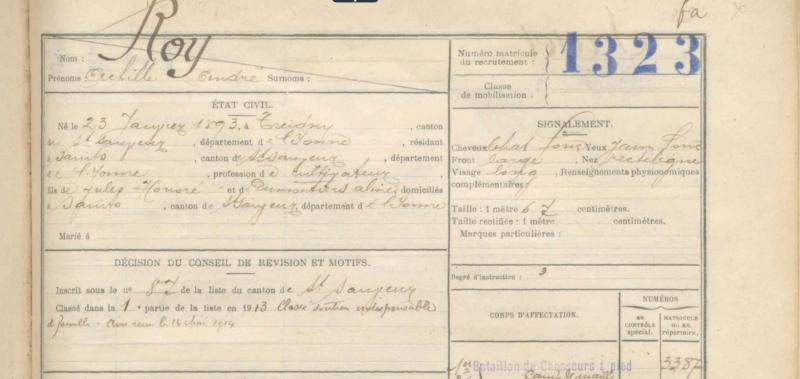 fa
Roy
Nom :
Prénoms Achille André Surnoms :
ÉTAT CIVIL.
Né le 23 Janvier 1893, à Treigny, canton
de St Sauveur, département de l'Yonne, résidant
à Saints, canton de St Sauveur, département
de l'Yonne, profession de cultivateur
fils de Jules Honoré et de Dumontiers aline, domiciliés
à Saints, canton de St Sauveur, département de l'Yonne
Marié à
DÉCISION DU CONSEIL DE REVISION ET MOTIFS.
Inscrit sous le no 87 de la liste du canton de St Sauveur
Classé dans la 1e partie de la liste en 1913 Classé soutien indispensable
de famille.
Numéro matricule
du recrutement :
1323
Classe
de mobilisation :
SIGNALEMENT.
Cheveux chat foncé Yeux jaun foncé
Front large Nez rectiligne
Visage long, Renseignements physionomiques
complémentaires
Taille : 1 mètre 67 centimètres.
Taille rectifiée : 1 mètre centimètres.
Marques particulières :
Degré d'instruction : 3
CORPS D'AFFECTATION.
NUMÉROS
AU CONTRÔLE spécial.
MATRICULE OU AU répertoire.
1er Bataillon de Chasseurs à pied 3387